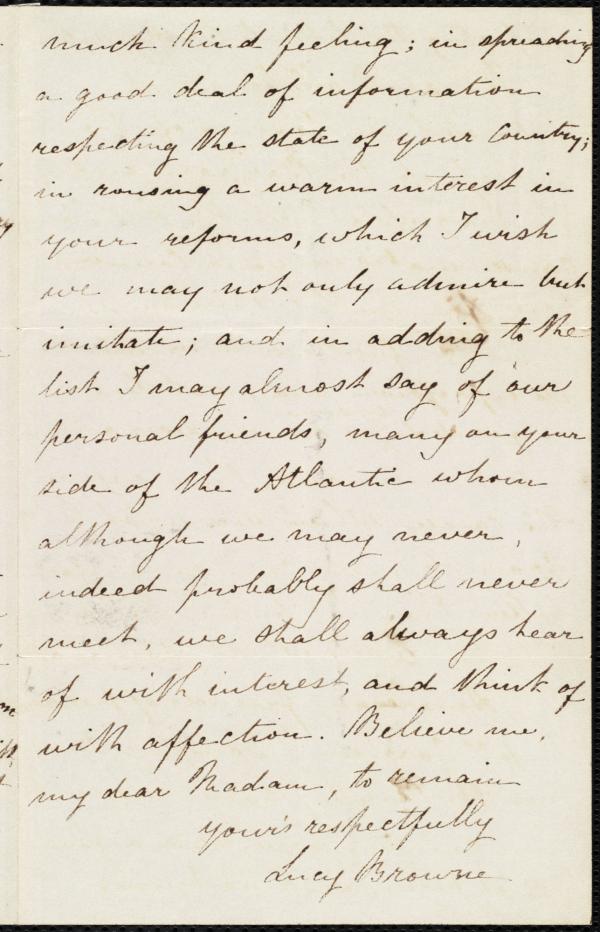 much kind feeling; in spreading
a good deal of information
respecting the state of your Country;
in rousing a warm interest in
your reforms, which I wish
we may not only admire but
imitate; and in adding to the
list I may almost say of our
personal friends, many on your
side of the Atlantic whom
although we may never,
indeed probably shall never
meet, we shall always hear
of with interest, and think of
with affection. Believe me,
my dear Madam, to remain
your's respectfully
Lucy Browne